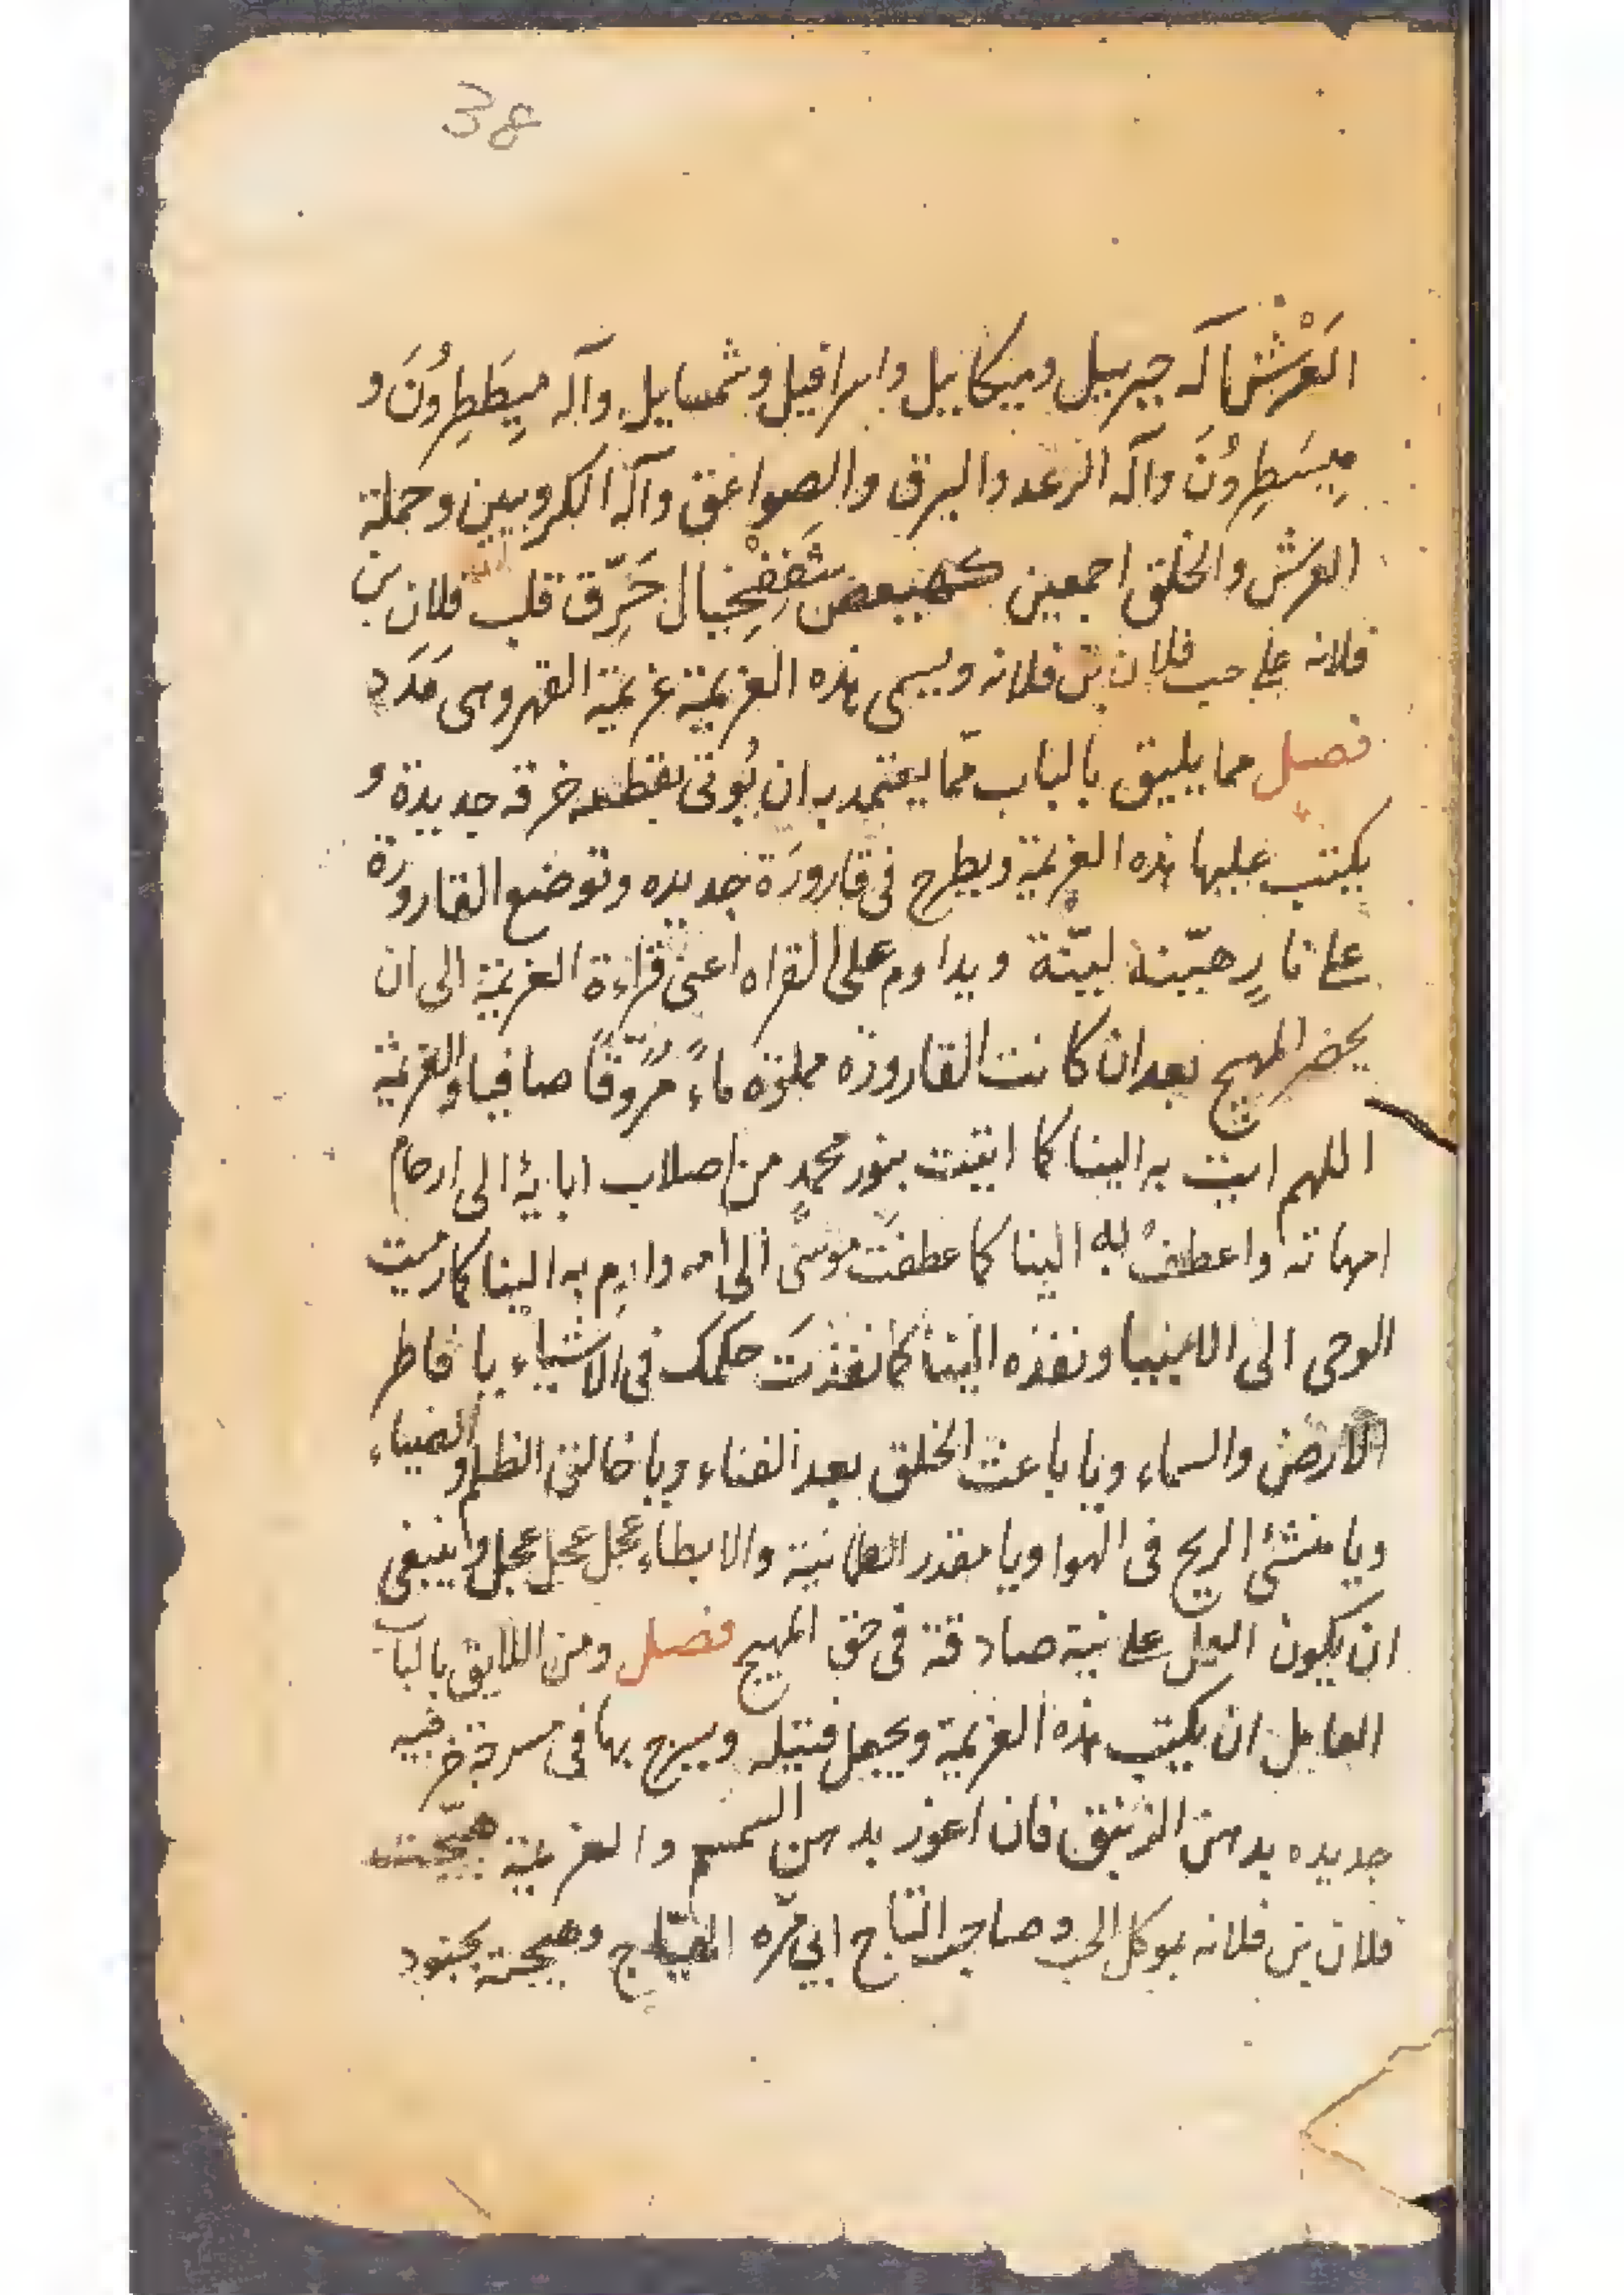 38
العَرْش آله جبرييل وميكاييل واسرافيل وشمساييل وآله ميِطَطِرُونَ و
مِيسَطِرُونَ وآله الرعد والبرق والصواعق وآله الكروبيين وحملة
العرش والخلق اجمعين كهيعص حَرِّق قلب فلان بن
فلانه على حب فلان بن فلانه ويسمى هذه العزيمة عزيمة القهر وهى
فصل مما يليق بالباب مّما يعتمد به ان يُوتى بقطعه خرقه جديدة و
يكتب عليها هذه العزيمة ويطرح فى قارورَة جديده وتوضع القارورة
على نارٍ هيّنة ليّنة ويداوم على القراه اعنى قراءة العزيمة الى ان
يحضر المهيج بعد ان كانت القاروره مملوّة ماءً مُرّوقًا صافيا والعزيمة
اللهم ايت به الينا كما اتيت بنور محمدٍ من اصلاب ابائه الى ارحام
امهاته واعطف به الينا كما عطفتَ موسى الى امه وارمِ به الينا كما رميت
الوحى الى الانبيا ونفذه الينا كما نفذتَ حكمك فى الاشياء يا فاطر
الارض والسماء ويا باعث الخلق بعد الفناء ويا خالق الظلم والضياء
ويا منشئ الريح فى الهوا ويا مقدر الطمانية والابطاء عجل عجل عجل وينبغى
ان يكون العمل على نية صادقة فى حق المهيج فصل ومن اللايق بالباب
العامل ان يكتب هذه العزيمة ويجعل فتيله ويسرج بها فى مسرجة خزفيه
جديده بدهن الزنبق فان اعوز بدهن السمسم والعزيمة هيّجت
فلان بن فلانه بموكل الحب وصاحب التاج ابى مرّه الهيّاج وهيجته بجنود